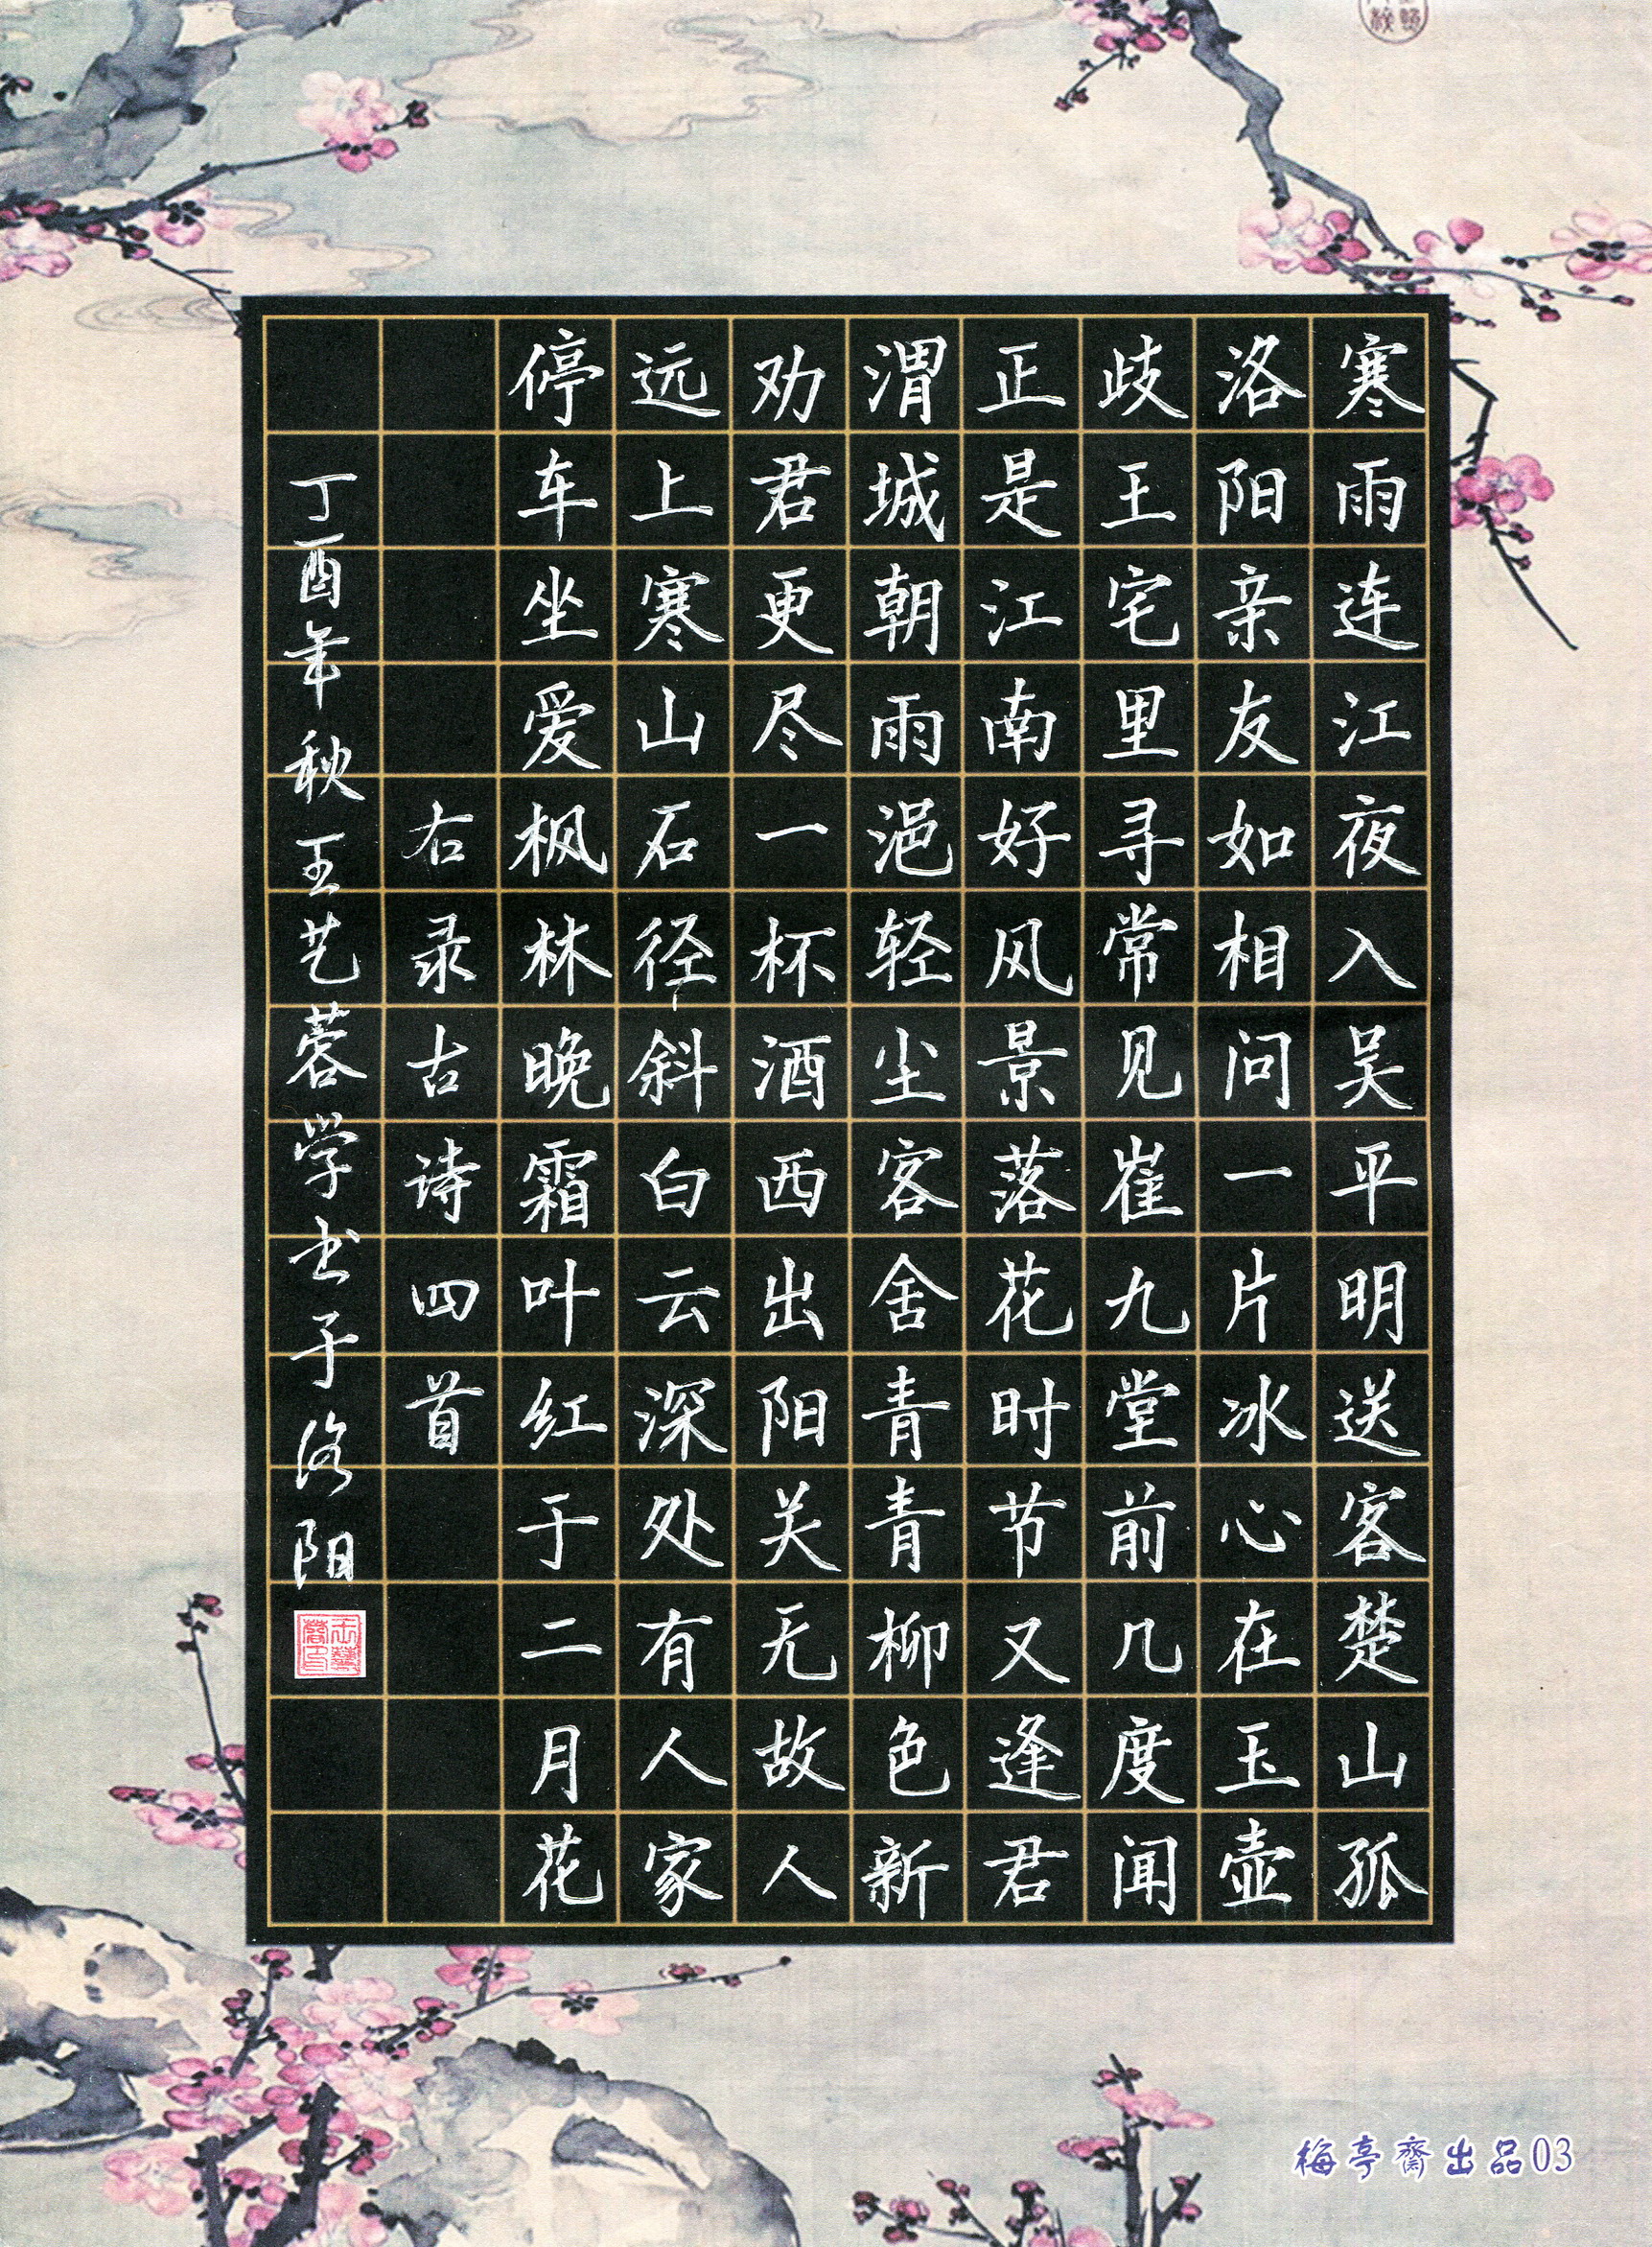 寒雨连江夜入吴平明送客楚山孤
洛阳亲友如相问一片冰心在玉壶
歧王宅里寻常见崔九堂前几度闻
正是江南好风景落花时节又逢君
渭城朝雨浥轻尘客舍青青柳色新
劝君更尽一杯酒西出阳关无故人
远上寒山石径斜白云深处有人家
停车坐爱枫林晚霜叶红于二月花
右录古诗四首
丁酉年秋王艺蓉学书于洛阳
梅亭齋出品03